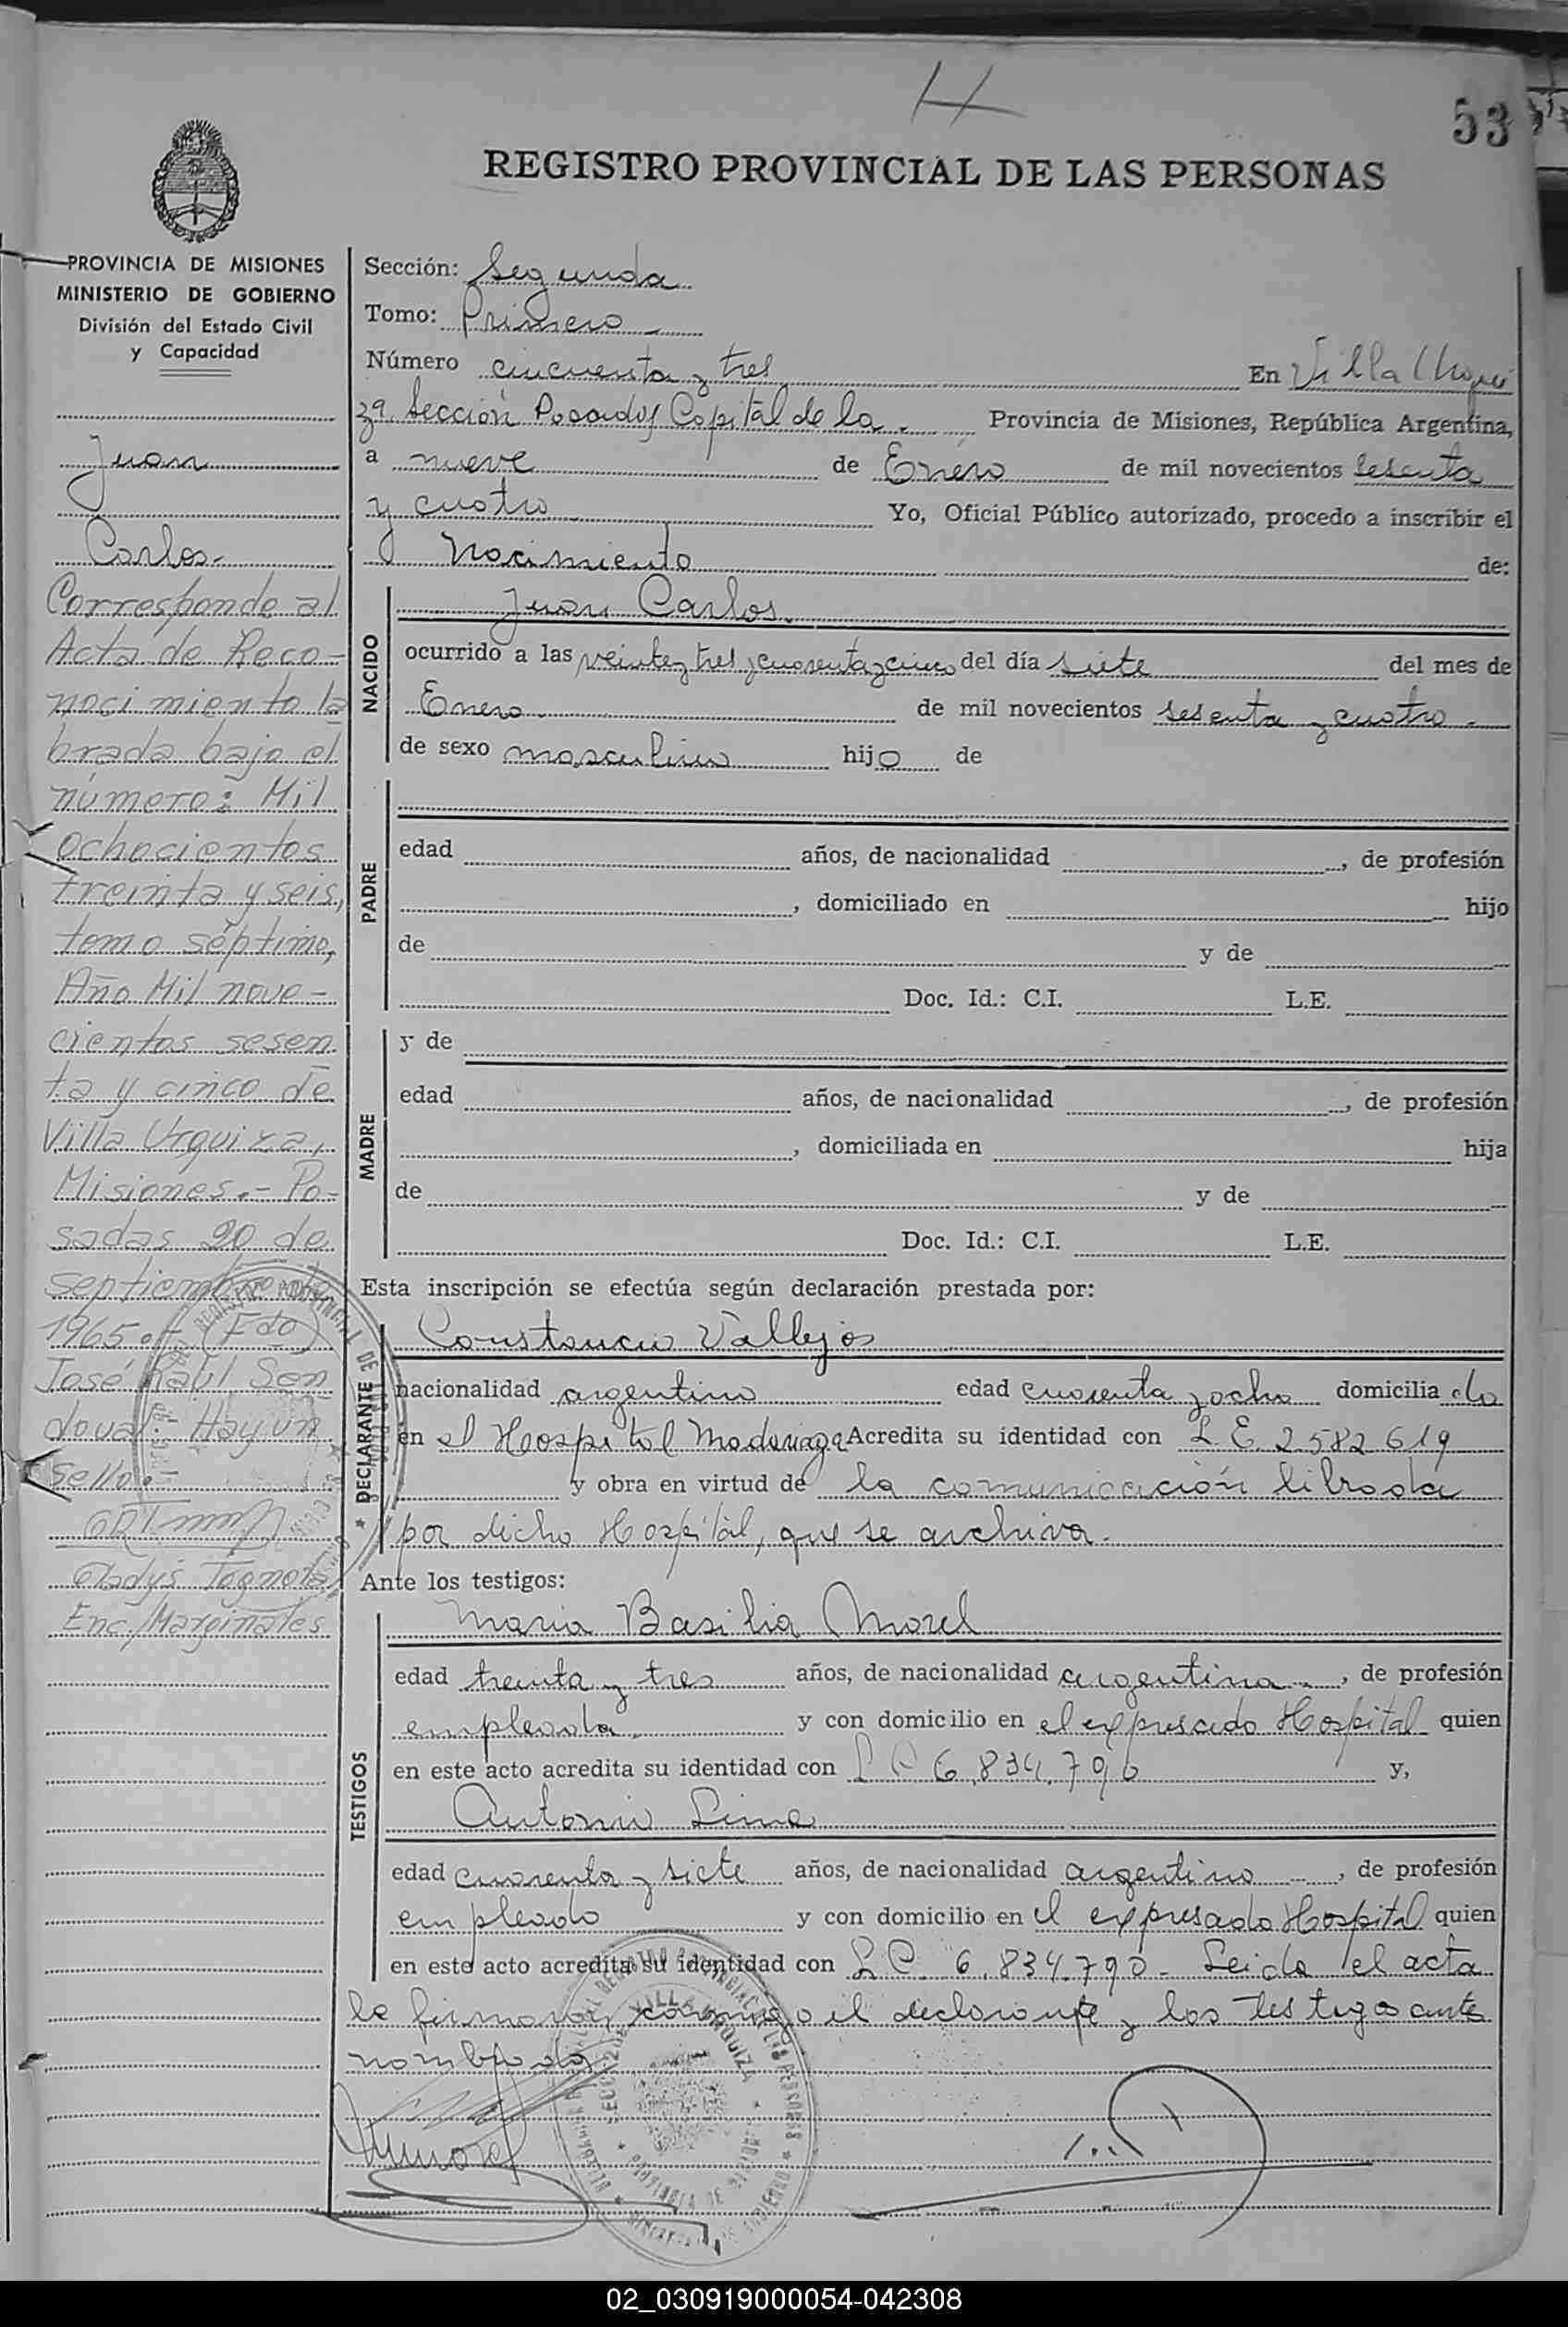 53
REGISTRO PROVINCIAL DE LAS PERSONAS
PROVINCIA DE MISIONES
MINISTERIO DE GOBIERNO
División del Estado Civil
y Capacidad
Juan
Carlos.-
Corresponde al
Acta de Reco-
nocimiento la
brada bajo el
número: Mil
ochocientos
treinta y seis,
tomo séptimo,
Año Mil nove-
cientos sesen
ta y cinco de
Villa Urquiza,
Misiones.- Po-
sadas 20 de
septiembre
1965.- (Fdo)
José Raúl San
doval.- Hay un
sello.-
Gladys Tognola
Enc/Marginales
Sección: Segunda
Tomo: Primero
Número cincuenta y tres En Villa Urqui
Sección Posadas Capital de la Provincia de Misiones, República Argentina,
a nueve de Enero de mil novecientos sesenta
y cuatro Yo, Oficial Público autorizado, procedo a inscribir el
nacimiento de:
NACIDO
Juan Carlos
ocurrido a las veinte y tres y cuarenta y cinco del día siete del mes de
Enero de mil novecientos sesenta y cuatro
de sexo masculino hijo de
PADRE
edad años, de nacionalidad , de profesión
, domiciliado en hijo
de y de
Doc. Id.: C.I. L.E.
MADRE
y de
edad años, de nacionalidad , de profesión
, domiciliada en hija
de y de
Doc. Id.: C.I. L.E.
Esta inscripción se efectúa según declaración prestada por:
DECLARANTE
Constancio Vallejos
nacionalidad argentino edad cuarenta y ocho domicilia do
en el Hospital Madariaga Acredita su identidad con L.E. 2582619
y obra en virtud de la comunicación librada
por dicho Hospital, que se archiva.
Ante los testigos:
TESTIGOS
Maria Basilia Morel
edad treinta y tres años, de nacionalidad argentina , de profesión
empleada y con domicilio en el expresado Hospital quien
en este acto acredita su identidad con L C 6.834.796 y,
Antonio Lima
edad cuarenta y siete años, de nacionalidad argentino , de profesión
empleado y con domicilio en el expresado Hospital quien
en este acto acredita su identidad con L C. 6.834.790 - Leida el acta
la firmaron conmigo el declarante y los testigos ante
nombrados
02_030919000054-042308